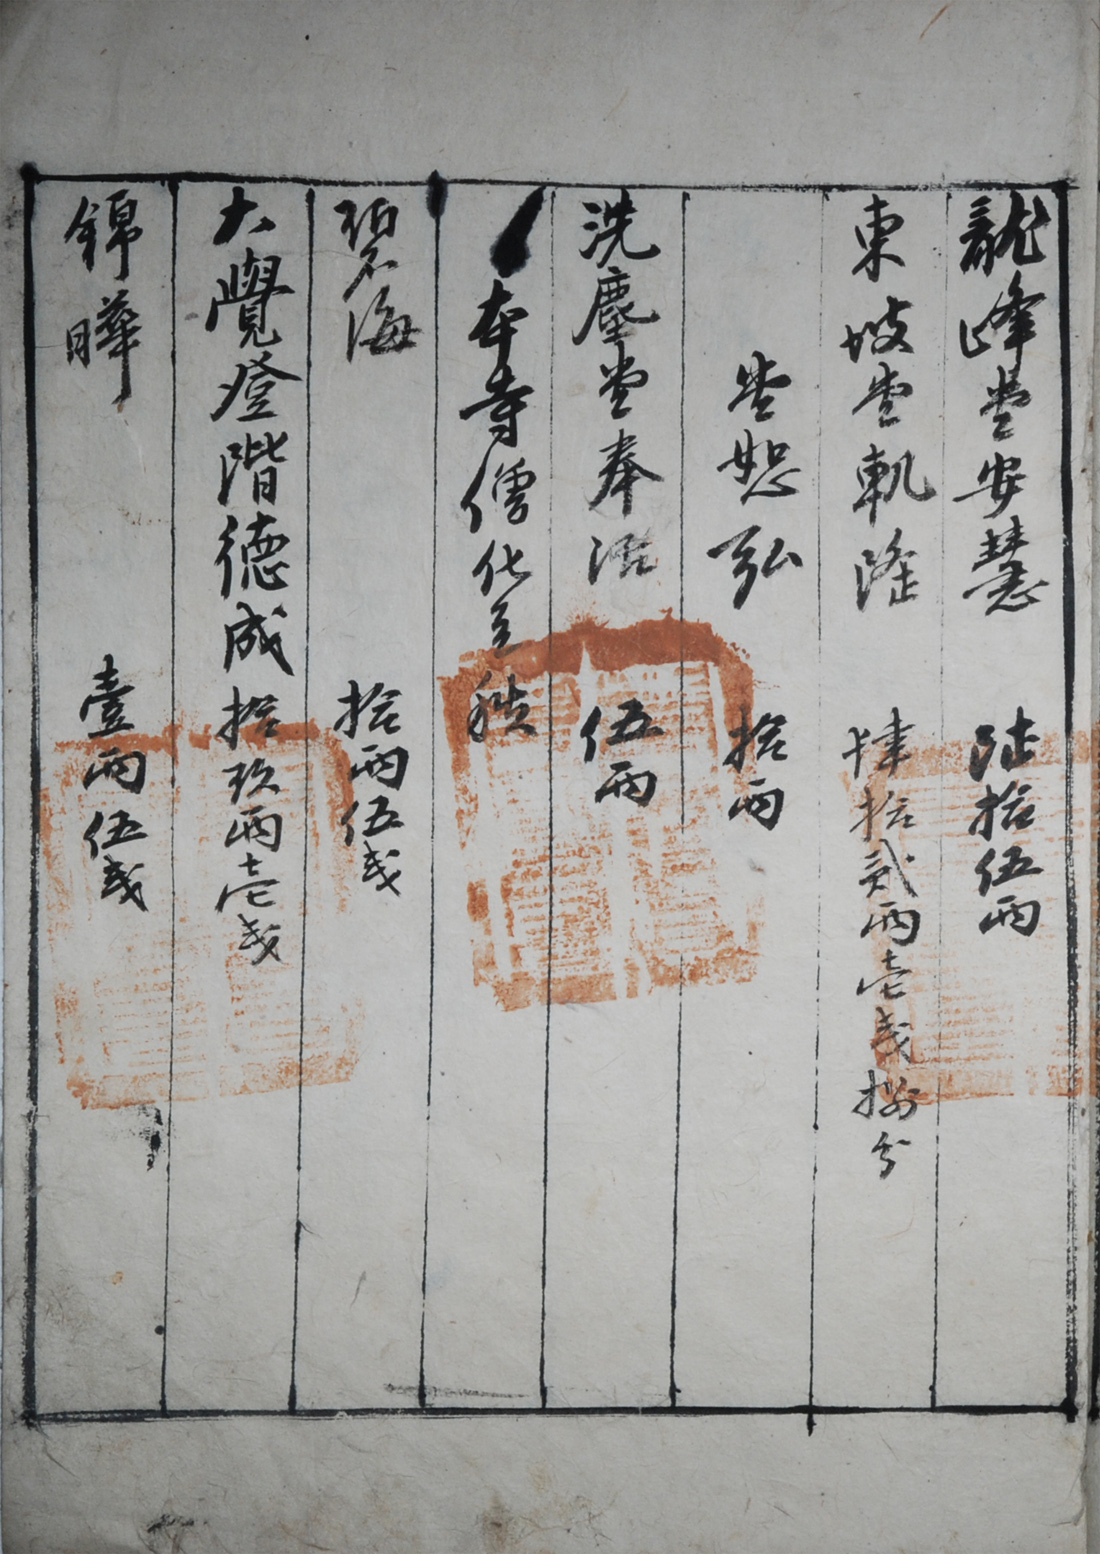 龍峰堂安慧 陸拾伍兩
東坡堂軌隆 肆拾貳兩壱戔捌分
堂恕弘 拾兩
洗塵堂奉沼 伍兩
本寺僧化主秩
碧海 拾兩伍戔
大覺登階德成 拾玖兩壱戔
錦曄 壹兩伍戔